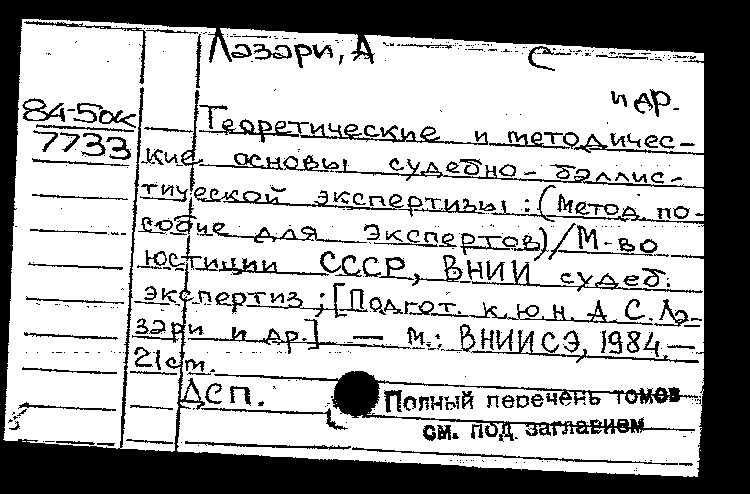 Лазари, А С
и др.
84-5ок
7733
Теоретические и методичес-
кие основы судебно-баллис-
тической экспертизы: (Метод по-
собие для экспертов)/М-во
юстиции СССР, ВНИИ судеб.
экспертиз; [Подгот. к.ю.н. А.С.Ла-
зари и др.] — М.: ВНИИСЭ, 1984.—
21см.
ДСП.
Полный перечень томов
см. под заглавием